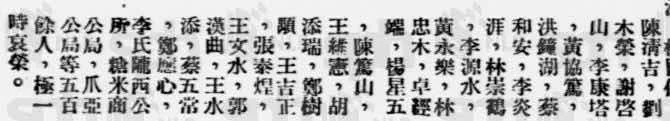 陳清吉，劉
木榮，謝啓
山，李康塔
，黃協篤，
洪鐘湖，蔡
和安，李炎
涯，林崇鶴
，李源水，
黃永樂，林
忠木，卓經
端，楊星五
，陳篤山，
王維憲，胡
添瑞，鄭樹
顯，王吉正
，張泰煌，
王文水，郭
漢曲，王水
添，蔡五常
，鄭應心，
李氏隴西公
所，糖米商
公局，爪亞
公局等五百
餘人，極一
時哀榮。